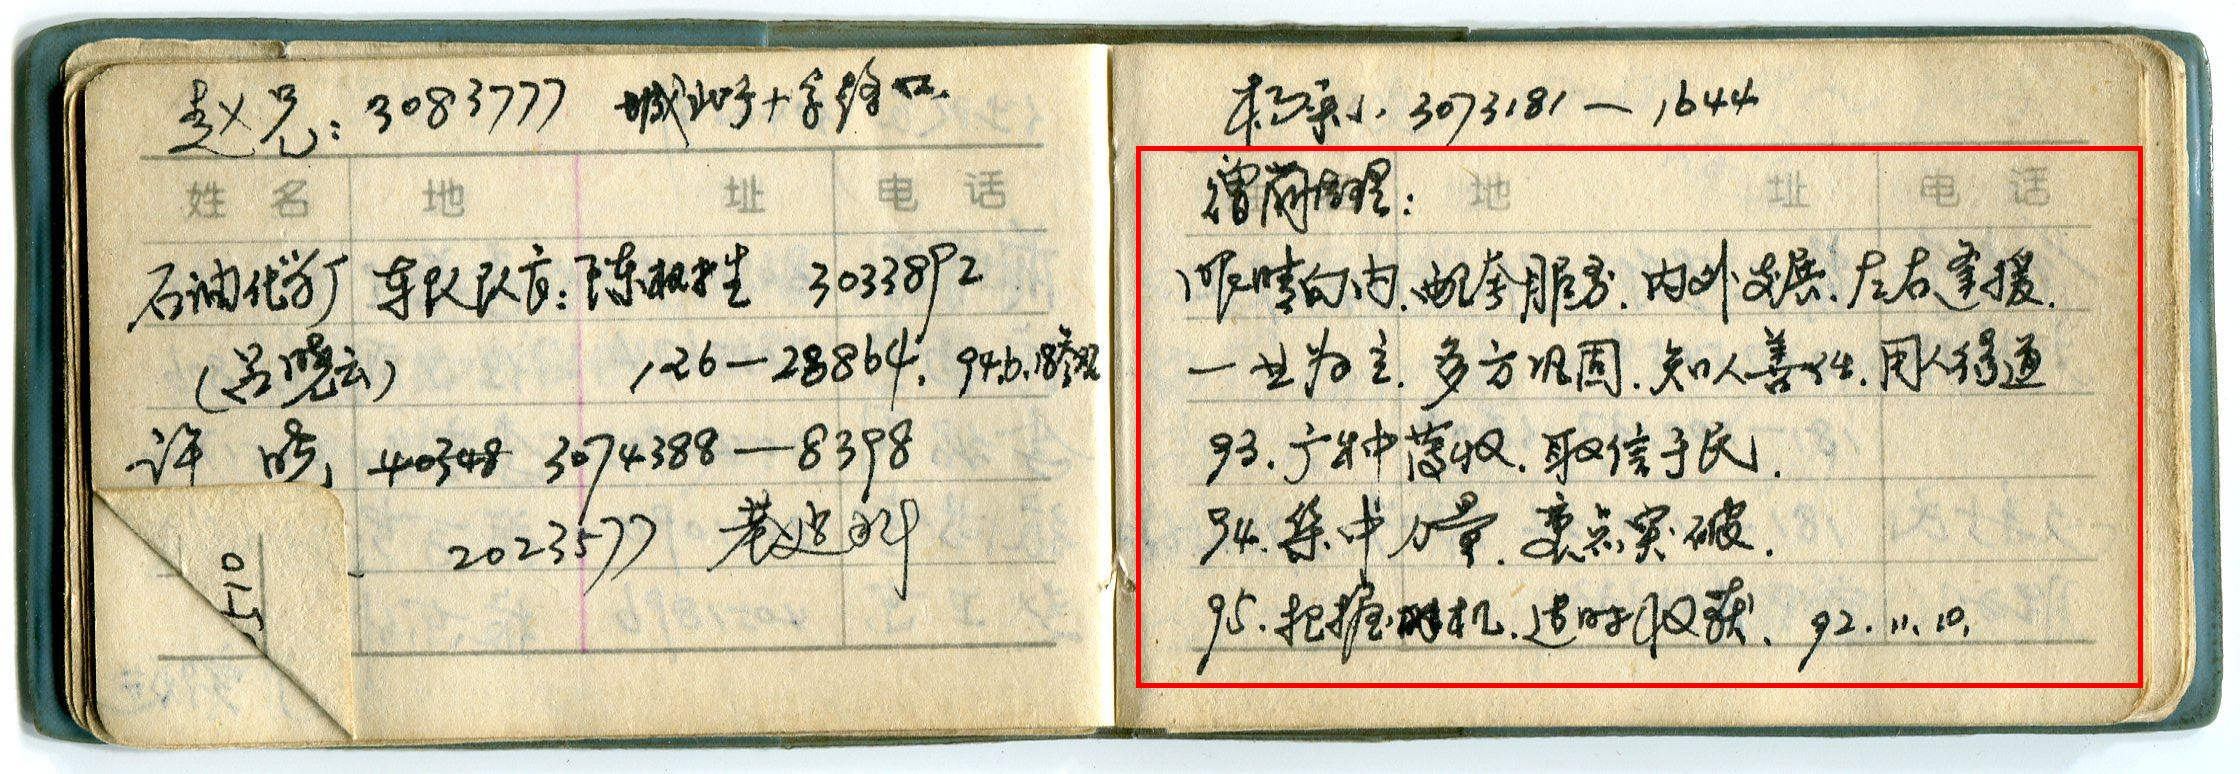 赵兄：3083777 城北字十字路口.
姓 名 地 址 电 话
石油化学厂 车队队长：陈根生 3033892
(吕晓云) 126—28864. 94.6.18
许 皓 40348 3074388—8398
2023577 黄迪科
01-5
杨 小. 3073181—1644
地 址 电 话
曾 经理：
眼睛向内. 配套服务. 内外发展. 左右逢援.
一业为主. 多方巩固. 知人善任. 用人得道
93. 广种薄收. 取信于民.
94. 集中力量. 重点突破.
95. 把握时机. 适时收获. 92.11.10.